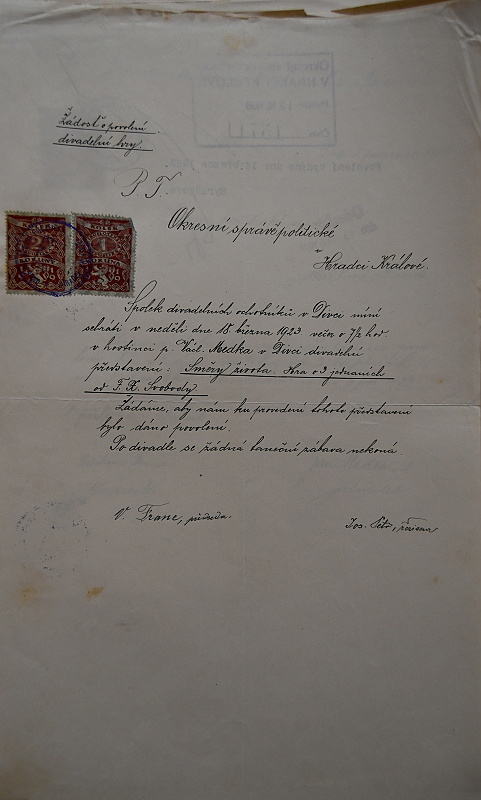 Žádost o povolení
divadelní hry.
P. T.
Okresní správě politické
v
Hradci Králové.
KOLEK KOLEK
2 1
Spolek divadelních ochotníků v Divci míní
sehráti v neděli dne 18. března 1923 večer o 7½ hod.
v hostinci p. Václ. Medka v Divci divadelní
představení: Směry života. Hra o 3 jednáních
od F. X. Svobody.
Žádáme, aby nám ku provedení tohoto představení
bylo dáno povolení.
Po divadle se žádná taneční zábava nekoná.
V. Franc, předseda. Jos. Petr, režisér